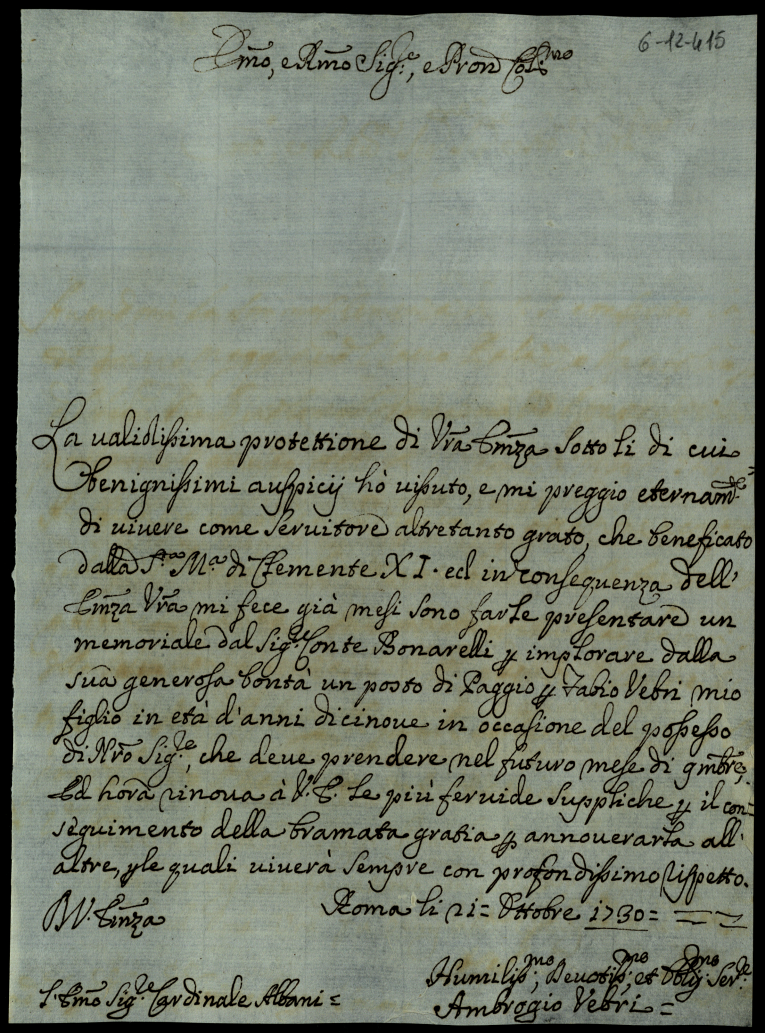 6-12-415
Emo, e Rmo Sig.re, e Pron Col.mo
La validissima protettione di Vra Emza sotto li di cui
benignissimi auspicij hò vissuto, e mi preggio eternam.te
di vivere come servitore altretanto grato, che beneficato
dalla S.ta M.a di Clemente XI. ed in consequenza dell'
Emza Vra mi fece già mesi sono farle presentare un
memoriale dal Sig.re Conte Bonarelli p implorare dalla
sua generosa bontà un posto di Paggio p Fabio Vebri mio
figlio in età d'anni dicinove in occasione del possesso
di Nro Sig.re, che deve prendere nel futuro mese di 9mbre,
Ed hora rinova à V. E. le più fervide suppliche p il con=
seguimento della bramata gratia p annoverarla all'
altre, p le quali viverà sempre con profondissimo rispetto.
Di V. Emza Roma li 21= Ottobre 1730=
S. Emo Sig.re Cardinale Albani= Humiliss.mo, Devotiss.mo, et Obblig.mo Ser.re
Ambrogio Vebri=